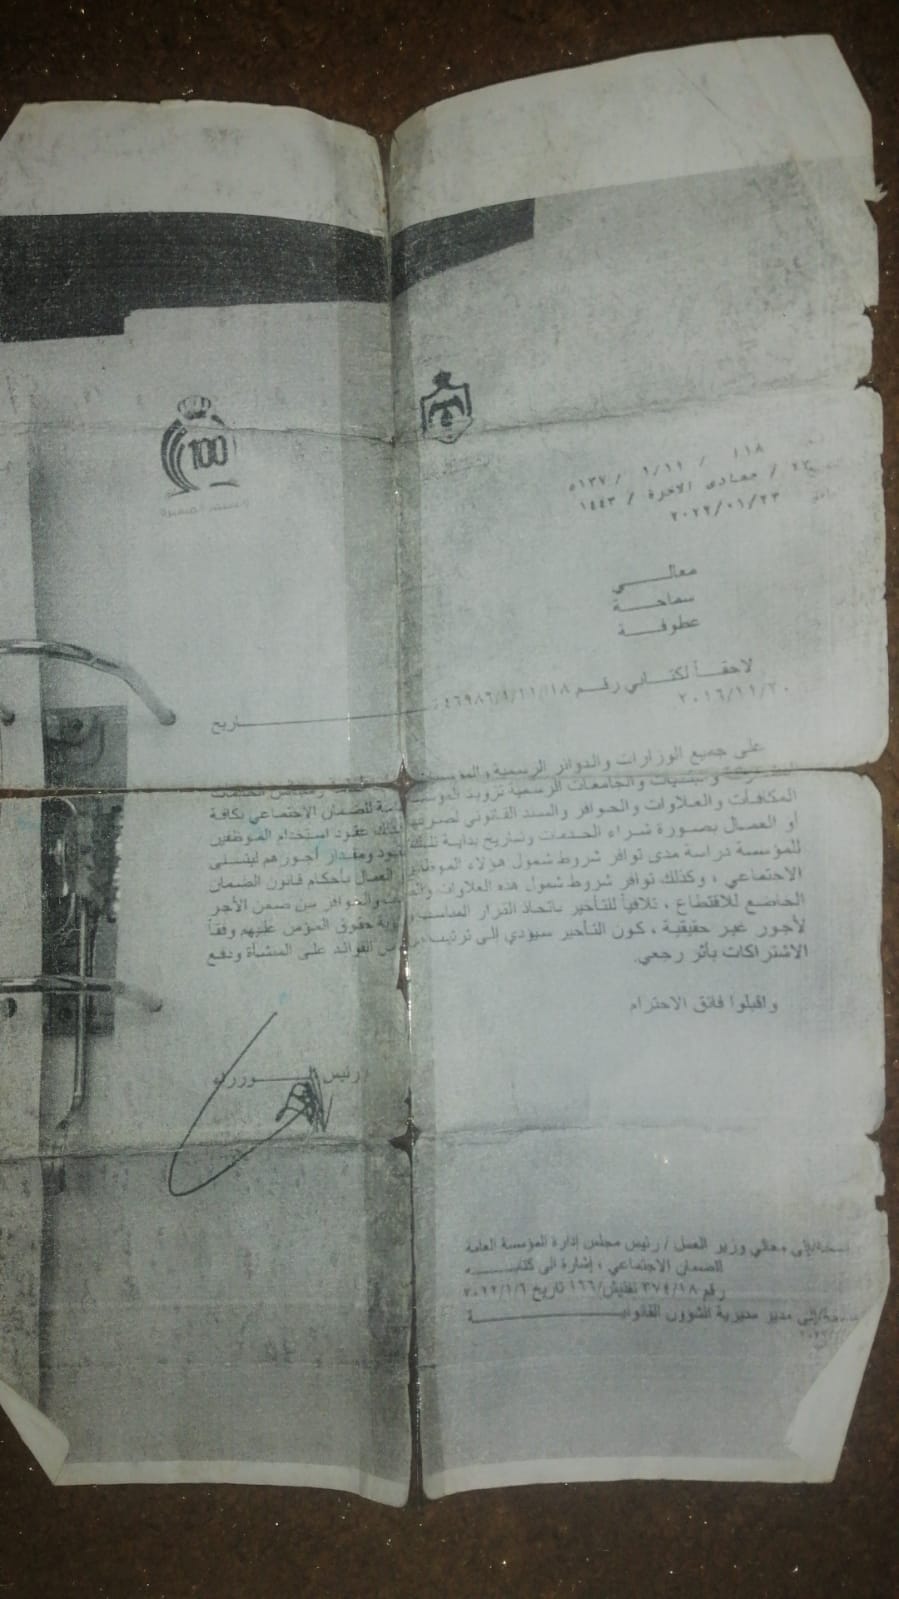 100
١٨ / ١١ / ١ / ٥١٣٧
٢٠ / جمادى الآخرة / ١٤٤٣
٢٠٢٢/٠١/٢٣
معالـــي
سماحـــة
عطوفـــة
لاحقـــاً لكتـــابي رقـــم ١٨/١١/١/٤٦٩٨٦ تـــاريخ
٢٠١٦/١١/٢٠
على جميع الوزارات والدوائر الرسمية
والبلديات والجامعات الرسمية تزويد المؤسسة العامة للضمان الاجتماعي بكافة
المكافآت والعلاوات والحوافز والسند القانوني لصرفها وكذلك عقود استخدام الموظفين
او العمال بصورة شراء الخدمات وتاريخ بداية تلك العقود ومقدار أجورهم ليتسنى
للمؤسسة دراسة مدى توافر شروط شمول هؤلاء الموظفين او العمال بأحكام قانون الضمان
الاجتماعي ، وكذلك توافر شروط شمول هذه العلاوات والمكافآت والحوافز من ضمن الأجر
الخاضع للاقتطاع ، تلافياً للتأخير باتخاذ القرار المناسب حقوق المؤمن عليهم وفقاً
لأجور غير حقيقية ، كون التأخير سيؤدي إلى ترتيب الفوائد على المنشأة ودفع
الاشتراكات بأثر رجعي.
واقبلوا فائق الاحترام
رئيس الـــوزراء
نسخة/إلى معالي وزير العمل / رئيس مجلس إدارة المؤسسة العامة
للضمان الاجتماعي ، إشارة الى كتابـــه
رقم ٣٧٤/١٨ تفتيش/١٦٦ تاريخ ٢٠٢٢/١/٦
نسخة/إلى مدير مديرية الشؤون القانونيـــة